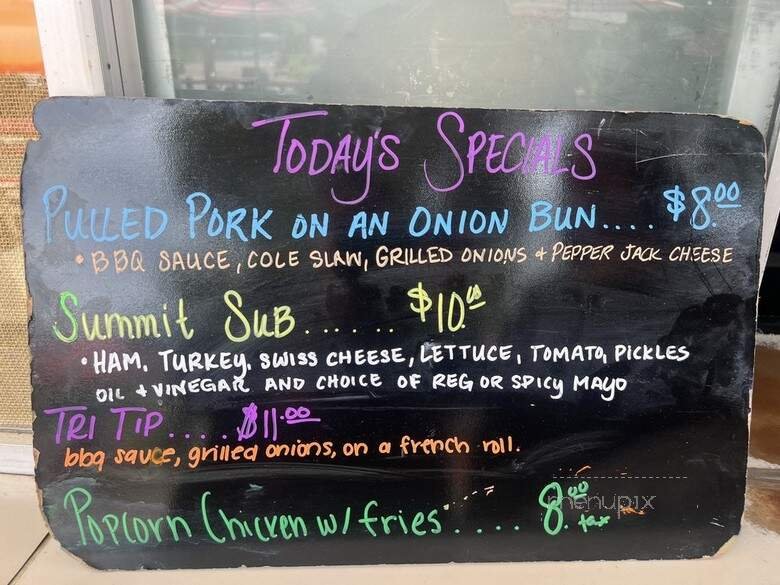 TODAY'S SPECIALS
PULLED PORK ON AN ONION BUN.... $8.00
• BBQ SAUCE, COLE SLAW, GRILLED ONIONS + PEPPER JACK CHEESE
Summit SUB...... $10.00
• HAM, TURKEY, SWISS CHEESE, LETTUCE, TOMATO, PICKLES
OIL + VINEGAR AND CHOICE OF REG OR SPICY MAYO
TRI TIP.... $11.00
bbq sauce, grilled onions, on a french roll.
Popcorn Chicken w/ fries.... 8.00
tax
menupix